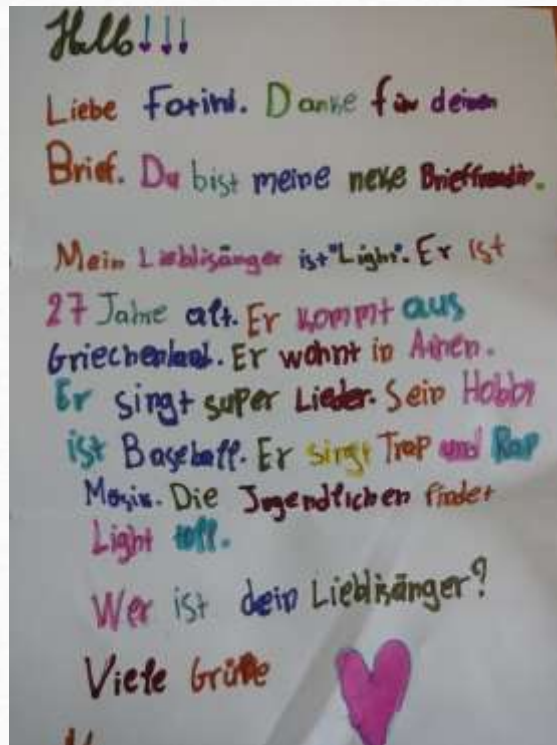 Hallo!!!
Liebe Fotini. Danke für deinen
Brief. Du bist meine neue Brieffreundin.
Mein Lieblisänger ist "Light". Er ist
27 Jahre alt. Er kommt aus
Griechenland. Er wohnt in Athen.
Er singt super Lieder. Sein Hobby
ist Baseball. Er singt Trap und Rap
Musik. Die Jugendlichen findet
Light toll.
Wer ist dein Lieblisänger?
Viele Grüße